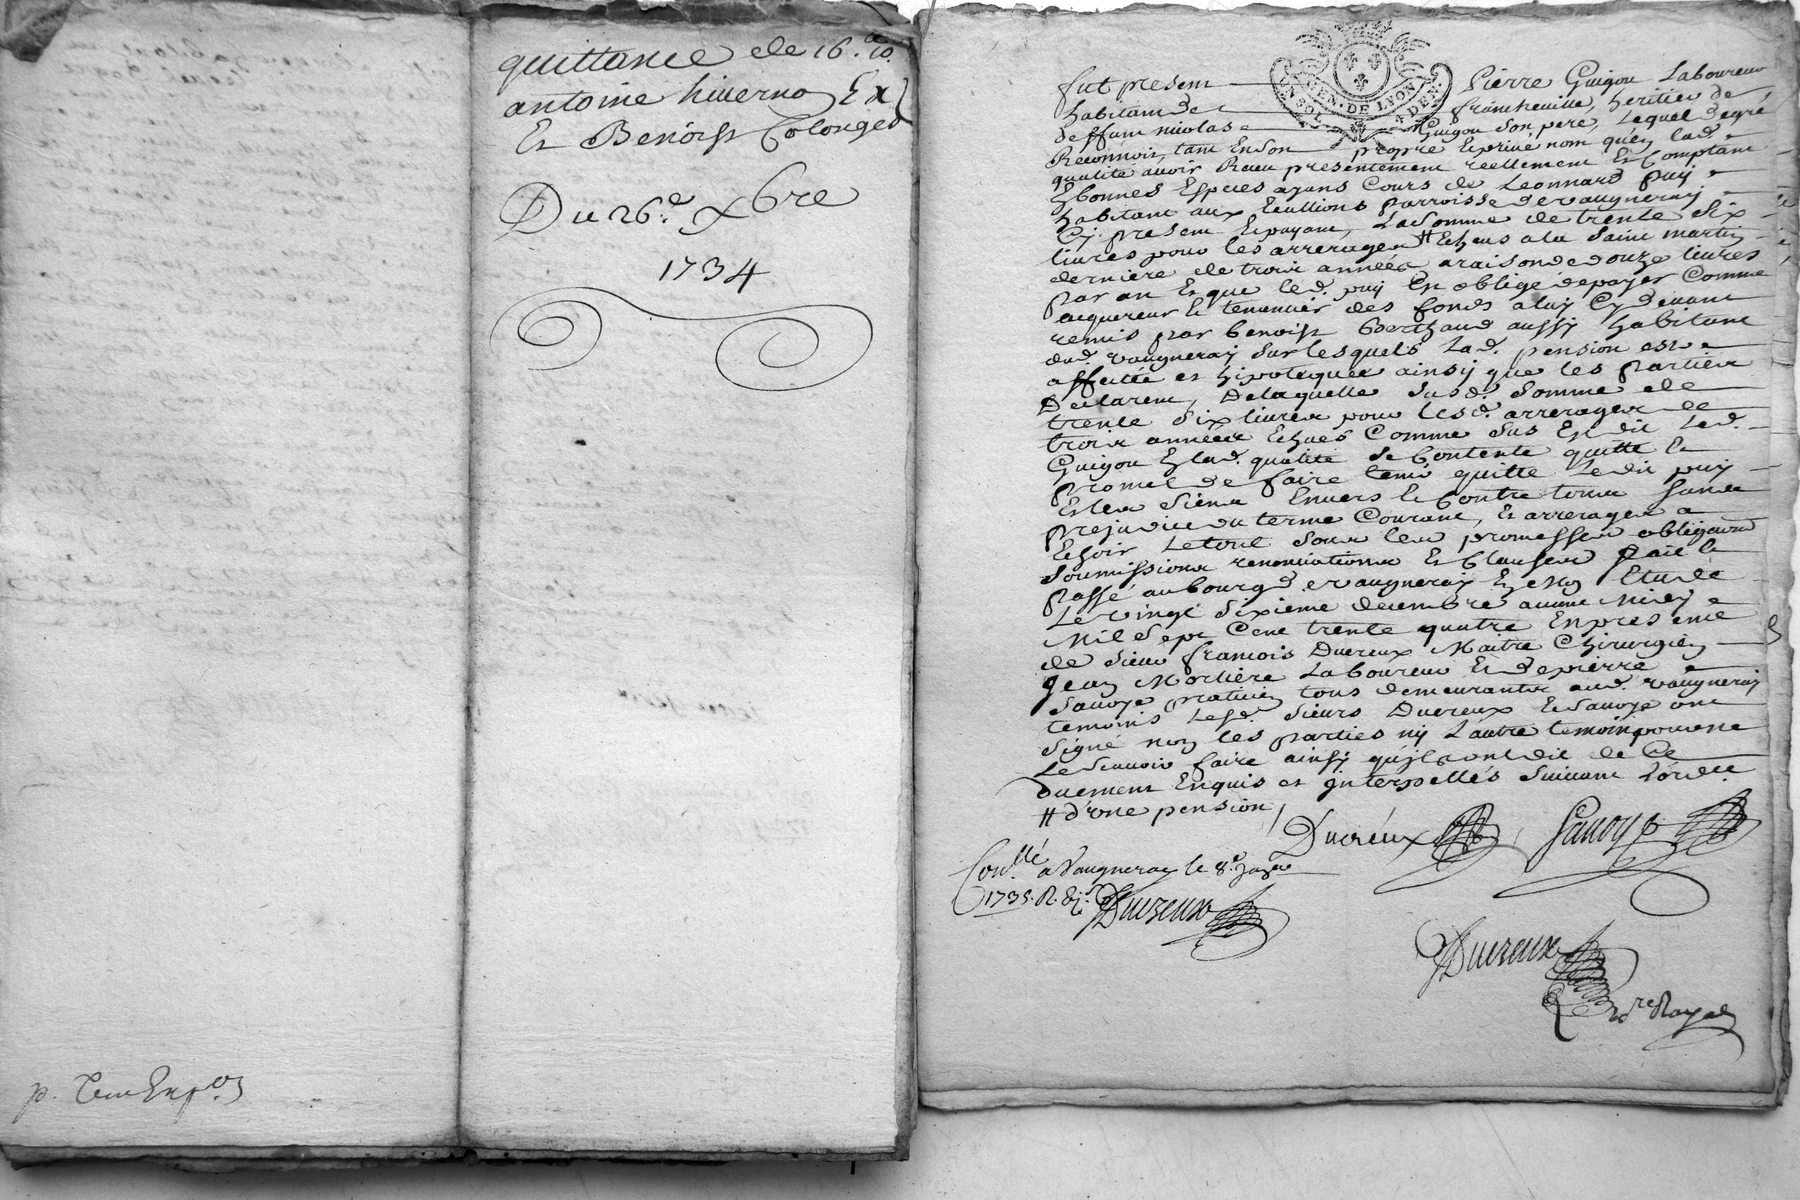 quittance de 16.
antoine hiuerno Ex
Et Benoist Colonges
Du 26.e xbre
1734
GEN. DE LYON
4 DEN.
fut present Pierre Guigou Laboureur
habitant de francheuille, heritier de
deffunt nicolas Guigou son pere, Lequel degré
Reconnoit, tant En Son propre Epriué nom qu'en lad.
qualité auoir Receu presentement reellement Et Comptant
Ebonnes Especes ayans Cours de Leonnard puy
habitant aux Ecullions parroisse de vaugneray
Cy present Epayant, La somme de trente Six
liures pour les arrerages # Echeus a la Saint martin
derniere de trois années araison de douze liures
par an Et que led. puy Est obligé de payer Comme
acquereur Et tenancier des fonds a luy Cy deuant
remis par benoist berthaud aussy habitant
dud. vaugneray Sur lesquels Lad. pension est
affectée et hipotequée ainsy que les Parties
Declarent, De laquelle Susd. Somme de
trente Six liures pour lesd. arrerages de
trois années Echues Comme Sus Est dit Led.
Guigou Elad. qualité Se Contente quitte Et
promet de faire tenir quitte Le dit puy
Et les Siens Enuers Et Contre tous Sans
prejudice du terme Courant, Et arrerages a
Echoir Le tout Sous les promesses obligaons
Soumissions renonciations Et Clauses fait Et
Passé au bourg de vaugneray En mon Etude
Le vingt Sixieme decembre auant Midy
Mil Sept Cent trente quatre En presence
de Sieur francois Ducreux Maitre Chirurgien
Jean Morliere Laboureur Et de pierre
Sauoye praticien tous demeurants aud. vaugneray
temoins Lesd. Sieurs Ducreux Et Sauoye ont
Signé non les parties ny L'autre temoin pour ne
Le Scauoir faire ainsy qu'ils ont dit de Ce
Duement Enquis et Interpellés Suiuant L'ordce
# d'vne pension
Ducreux Sauoye
Con.llé a Vaugneray le 8.e Janer
1735. R.
Ducreux
Ducreux
nore Royal